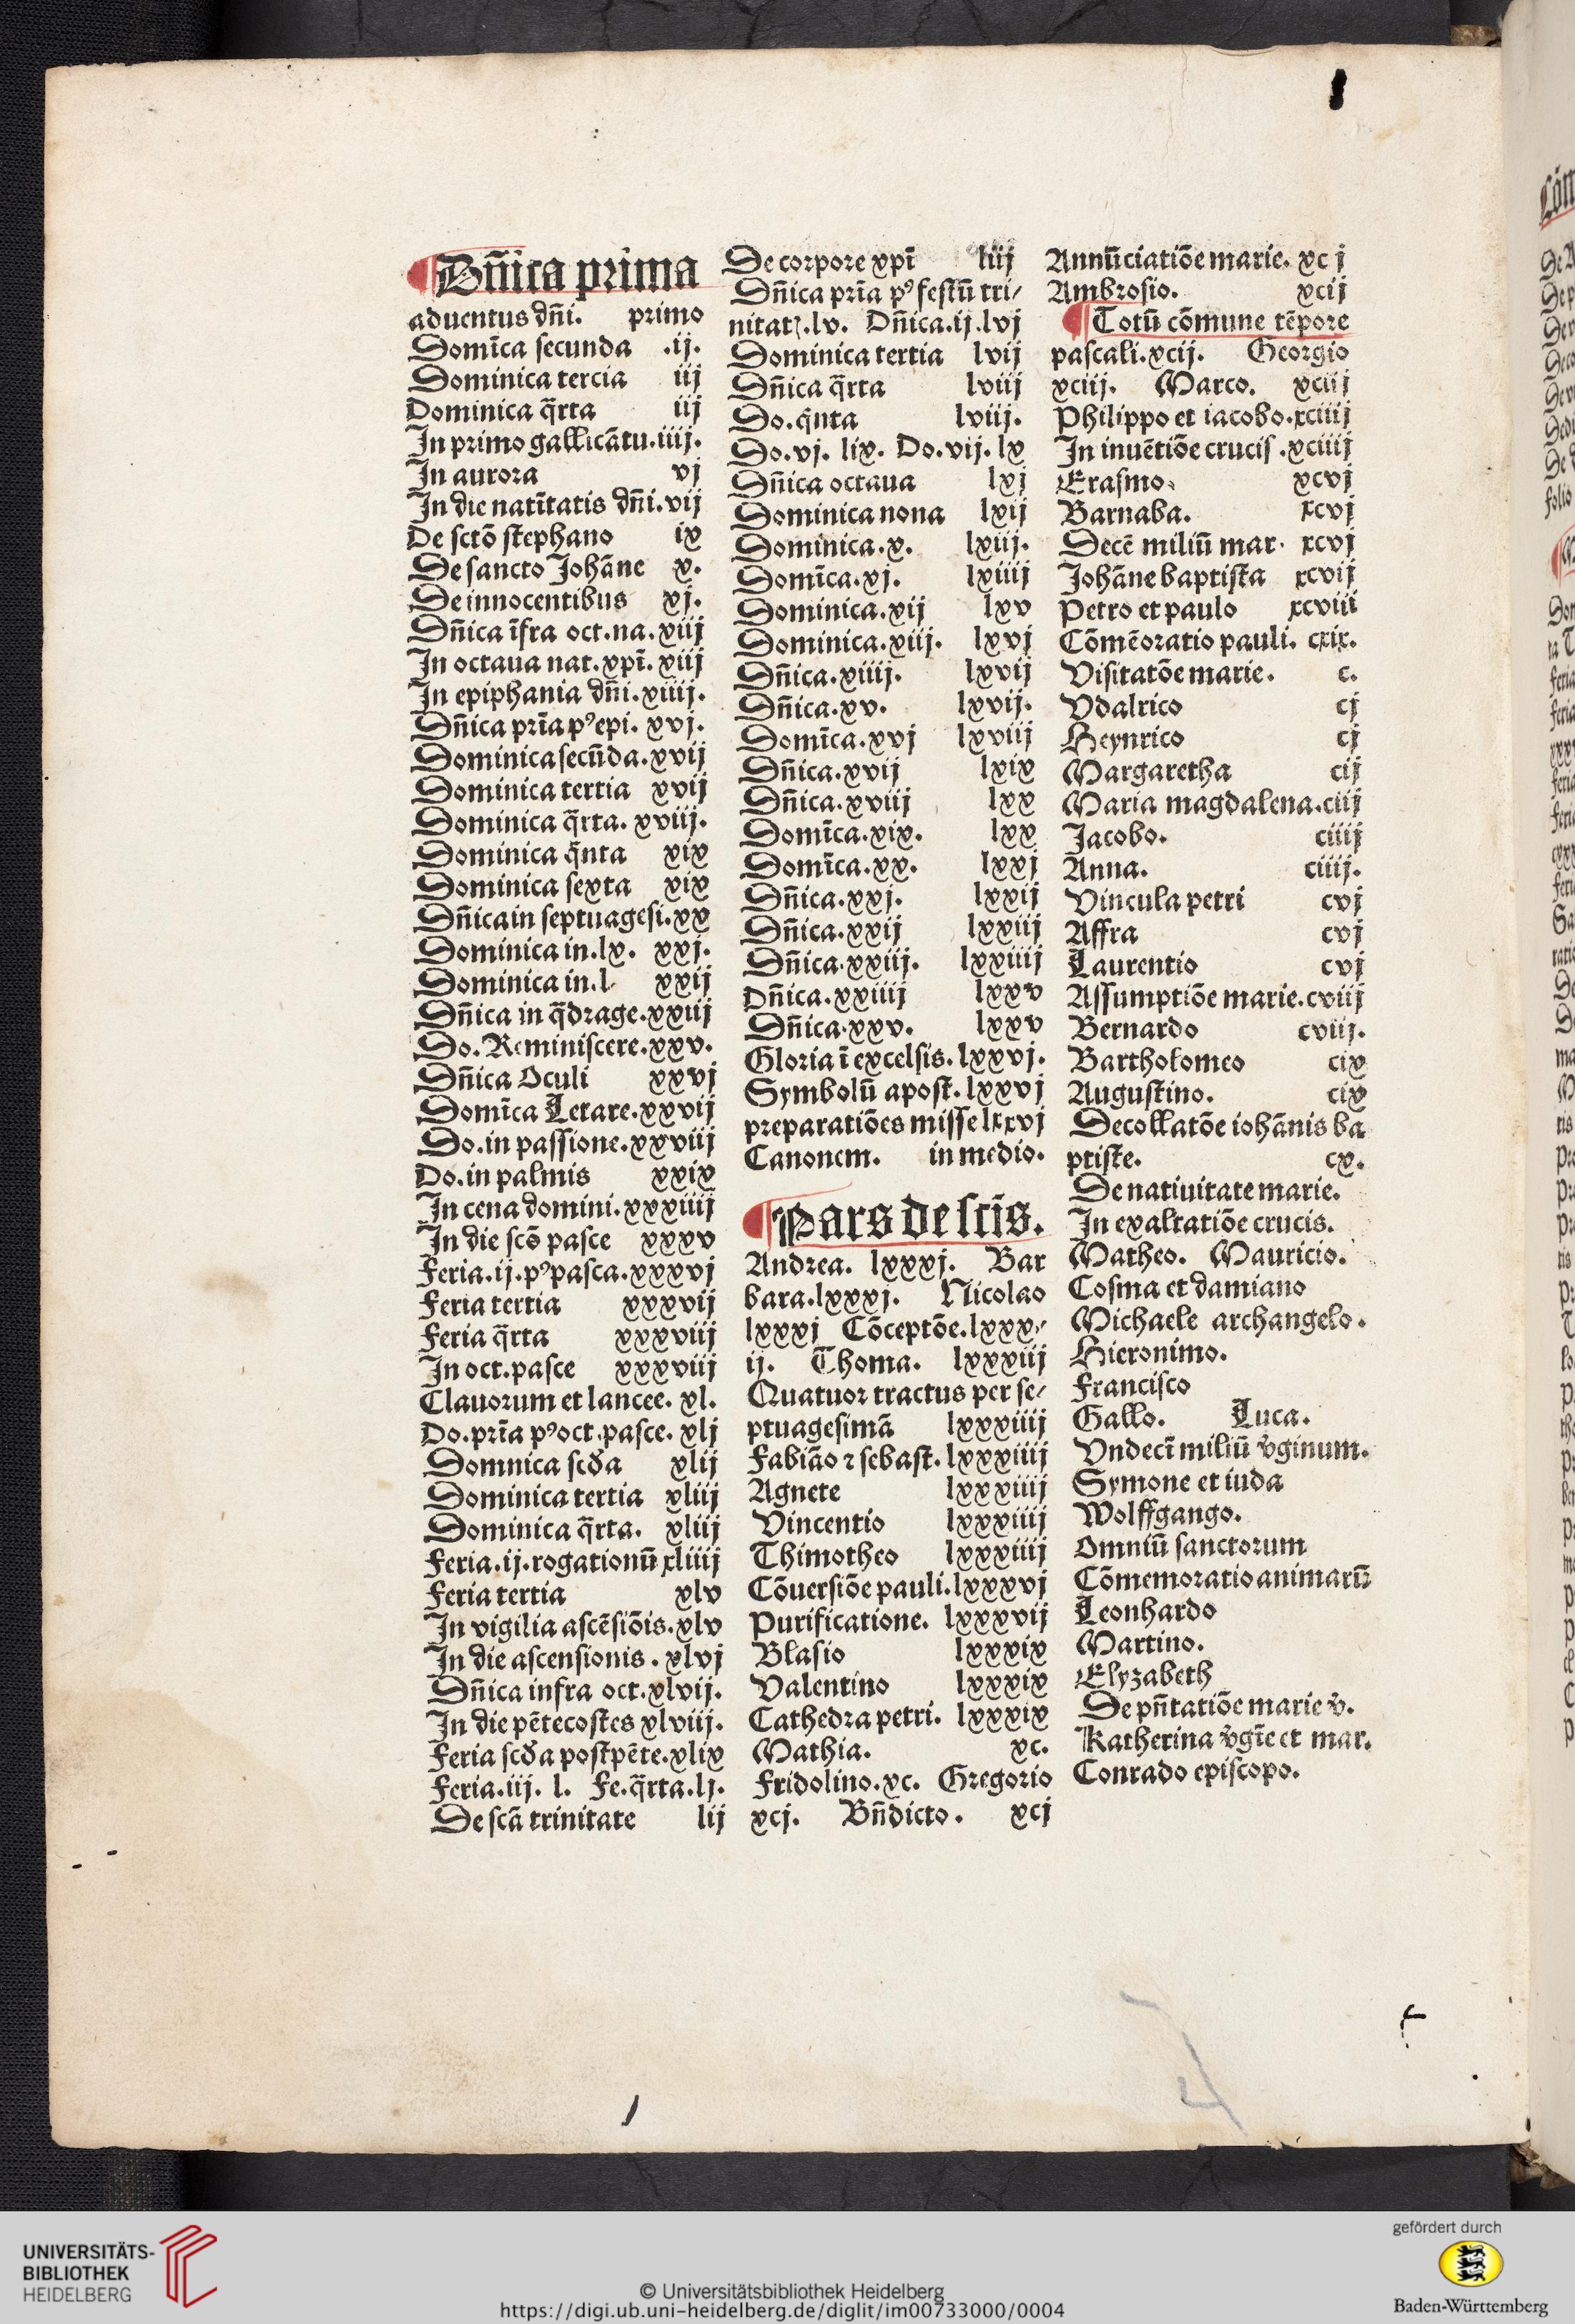 Dn̄ica prima
aduentus dn̄i. primo
Domīca secunda .ij.
Dominica tercia iij
Dominica q̄rta iij
In primo gallicātu.iiij.
In aurora vj
In die natītatis dn̄i.vij
De sctō stephano ix
De sancto Johāne x.
De innocentibus xj.
Dn̄ica īfra oct.na.xiij
In octaua nat.xpī.xiij
In epiphania dn̄i.xiiij.
Dn̄ica prīa pꝰepi.xvj.
Dominica secūda.xvij
Dominica tertia xvij
Dominica q̄rta.xviij.
Dominica q̄nta xix
Dominica sexta xix
Dn̄ica in septuagesi.xx
Dominica in.lx. xxj.
Dominica in.l. xxij
Dn̄ica in q̄drage.xxiij
Do.Reminiscere.xxv.
Dn̄ica Oculi xxvj
Domīca Letare.xxvij
Do.in passione.xxviij
Do.in palmis xxix
In cena domini.xxxiiij
In die scō pasce xxxv
Feria.ij.pꝰpasca.xxxvj
Feria tertia xxxvij
Feria q̄rta xxxviij
In oct.pasce xxxviij
Clauorum et lancee. xl.
Do.prīa pꝰoct.pasce.xlj
Domnica scđa xlij
Dominica tertia xliij
Dominica q̄rta. xliij
Feria.ij.rogationū xliiij
Feria tertia xlv
In vigilia ascēsiōis.xlv
In die ascensionis.xlvj
Dn̄ica infra oct.xlvij.
In die pētecostes xlviij.
Feria scđa postpēte.xlix
Feria.iij. l. Fe.q̄rta.lj.
De scā trinitate lij
De corpore xpī liij
Dn̄ica prīa pꝰfestū tri/
nitatꝭ.lv. Dn̄ica.ij.lvj
Dominica tertia lvij
Dn̄ica q̄rta lviij
Do.q̄nta lviij.
Do.vj. lix. Do.vij. lx
Dn̄ica octaua lxj
Dominica nona lxij
Dominica.x. lxiij.
Domīca.xj. lxiiij
Dominica.xij lxv
Dominica.xiij. lxvj
Dn̄ica.xiiij. lxvij
Dn̄ica.xv. lxvij.
Domīca.xvj lxviij
Dn̄ica.xvij lxix
Dn̄ica.xviij lxx
Domīca.xix. lxx
Domīca.xx. lxxj
Dn̄ica.xxj. lxxij
Dn̄ica.xxij lxxiij
Dn̄ica.xxiij. lxxiiij
Dn̄ica.xxiiij lxxv
Dn̄ica.xxv. lxxv
Gloria ī excelsis.lxxvj.
Symbolū apost.lxxvj
preparatiōes misse lxxvj
Canonem. in medio.
Pars de sctīs.
Andrea. lxxxj. Bar
bara.lxxxj. Nicolao
lxxxj Cōceptōe.lxxx/
ij. Thoma. lxxxiij
Quatuor tractus per se/
ptuagesimā lxxxiiij
Fabiāo ⁊ sebast.lxxxiiij
Agnete lxxxiiij
Vincentio lxxxiiij
Thimotheo lxxxiiij
Cōuersiōe pauli.lxxxvj
Purificatione. lxxxvij
Blasio lxxxix
Valentino lxxxix
Cathedra petri. lxxxix
Mathia. xc.
Fridolino.xc. Gregorio
xcj. Bn̄dicto. xcj
Annūciatiōe marie. xcj
Ambrosio. xcij
Totū cōmune tēpore
pascali.xcij. Georgio
xciij. Marco. xciij
Philippo et iacobo.xciiij
In inuētiōe crucis.xciiij
Erasmo. xcvj
Barnaba. xcvj
Decē miliū mar. xcvj
Johāne baptista xcvij
Petro et paulo xcviii
Cōmēoratio pauli. cxix.
Visitatōe marie. c.
Vdalrico cj
Heynrico cj
Margaretha cij
Maria magdalena.ciij
Jacobo. ciiij
Anna. ciiij.
Vincula petri cvj
Affra cvj
Laurentio cvj
Assumptiōe marie.cviij
Bernardo cviij.
Bartholomeo cix
Augustino. cix
Decollatōe iohānis ba
ptiste. cx.
De natiuitate marie.
In exaltatiōe crucis.
Matheo. Mauricio.
Cosma et damiano
Michaele archangelo.
Hieronimo.
Francisco
Gallo. Luca.
Vndecī miliū v̄ginum.
Symone et iuda
Wolffgango.
Omniū sanctorum
Cōmemoratio animarū
Leonhardo
Martino.
Elyzabeth
De pn̄tatiōe marie v̄.
Katherina v̄gīe et mar.
Conrado episcopo.
UNIVERSITÄTS-
BIBLIOTHEK
HEIDELBERG
© Universitätsbibliothek Heidelberg
https://digi.ub.uni-heidelberg.de/diglit/im00733000/0004
gefördert durch
Baden-Württemberg